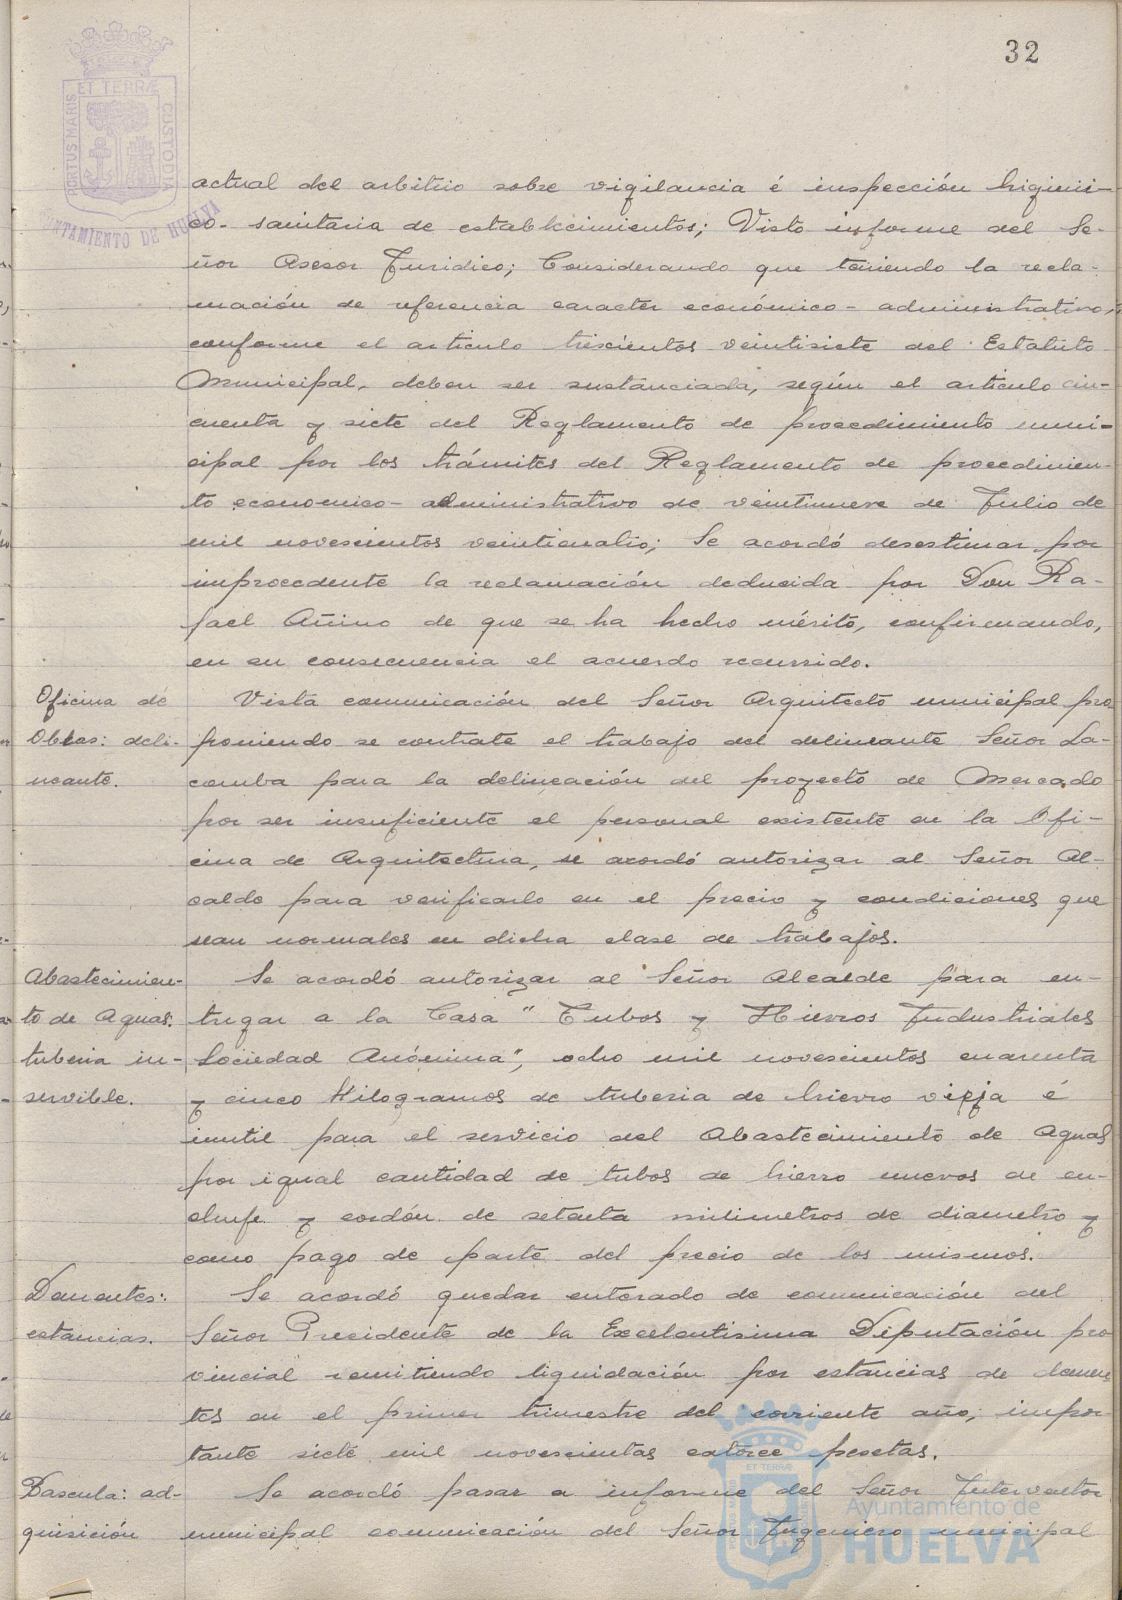 32
ET TERRÆ
PORTUS MARIS
CUSTODIA
AYUNTAMIENTO DE HUELVA
actual del arbitrio sobre vigilancia é inspección higiéni-
co-sanitaria de establecimientos; Visto informe del Se-
ñor Asesor Juridico; Considerando que teniendo la recla-
mación de referencia caracter económico-administrativo,
conforme el articulo trescientos veintisiete del Estatuto
Municipal, deben ser sustanciada, según el articulo cin-
cuenta y siete del Reglamento de procedimiento muni-
cipal por los trámites del Reglamento de procedimien-
to economico-administrativo de veintinueve de Julio de
mil novecientos veinticuatro; Se acordó desestimar por
improcedente la reclamación deducida por Don Ra-
fael Añino de que se ha hecho mérito, confirmando,
en su consecuencia el acuerdo recurrido.
Oficina de
Obras: deli-
neante.
Vista comunicación del Señor Arquitecto municipal pro-
poniendo se contrate el trabajo del delineante Señor La-
comba para la delineación del proyecto de Mercado
por ser insuficiente el personal existente en la Ofi-
cina de Arquitectura, se acordó autorizar al Señor Al-
calde para verificarlo en el precio y condiciones que
sean normales en dicha clase de trabajos.
Abastecimien-
to de Aguas:
tuberia in-
servible.
Se acordó autorizar al Señor Alcalde para en-
tregar a la Casa "Tubos y Hierros Industriales
Sociedad Anónima", ocho mil novecientos cuarenta
y cinco Kilogramos de tuberia de hierro vieja é
inutil para el servicio del Abastecimiento de Aguas
por igual cantidad de tubos de hierro nuevos de en-
chufe y cordón de setenta milimetros de diametro y
como pago de parte del precio de los mismos.
Dementes:
estancias.
Se acordó quedar enterado de comunicación del
Señor Presidente de la Excelentisima Diputación pro
vincial remitiendo liquidación por estancias de demen
tes en el primer trimestre del corriente año, impor
tante siete mil novecientas catorce pesetas.
Bascula: ad-
quisición
Se acordó pasar a informe del Señor Interventor
municipal comunicación del Señor Ingeniero municipal
ET TERRÆ
Ayuntamiento de
HUELVA